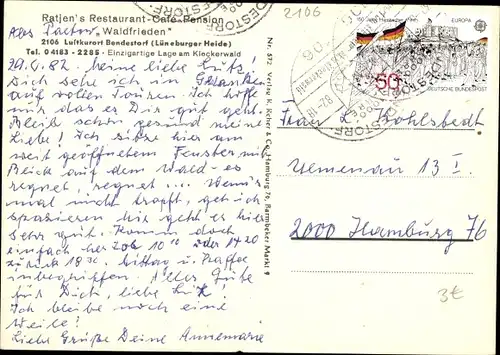 Ratjen's Restaurant-Café-Pension
"Waldfrieden"
2106 Luftkurort Bendestorf (Lüneburger Heide)
Tel. 0 4183 - 2285 - Einzigartige Lage am Kleckerwald
82. Meine liebe
Dich sehe ich in Gedanken
auf vollen Touren. Ich hoffe
mir, das es Dir gut geht.
Bleib schön gesund meine
Liebe! Ich sitze hier am
weit geöffnetem Fenster mit
Blick auf dem Wald - es
regnet, regnet ... Wenn's
mal nicht tropft, geh ich
spazieren mir geht es hier
sehr gut. Komm doch
einfach her 10 10 oder 14 20
zurück 18 30. Mittag u. Kaffee
inbegriffen. Alles Gute
für Dich, liebe
Ich bleibe noch eine
Weile!
Liebe Grüße Deine Annemarie
Nr. 572 Verlag K. Keller & Co., Hamburg 76, Barmbeker Markt 9
2106
EUROPA
50
DEUTSCHE BUNDESPOST
BENDESTORF
Frau L. Kohlstedt
13 I.
2000 Hamburg 76
3€